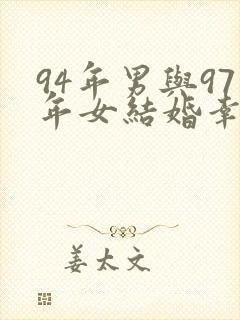 94年男與97
年女結婚幸
姜太文